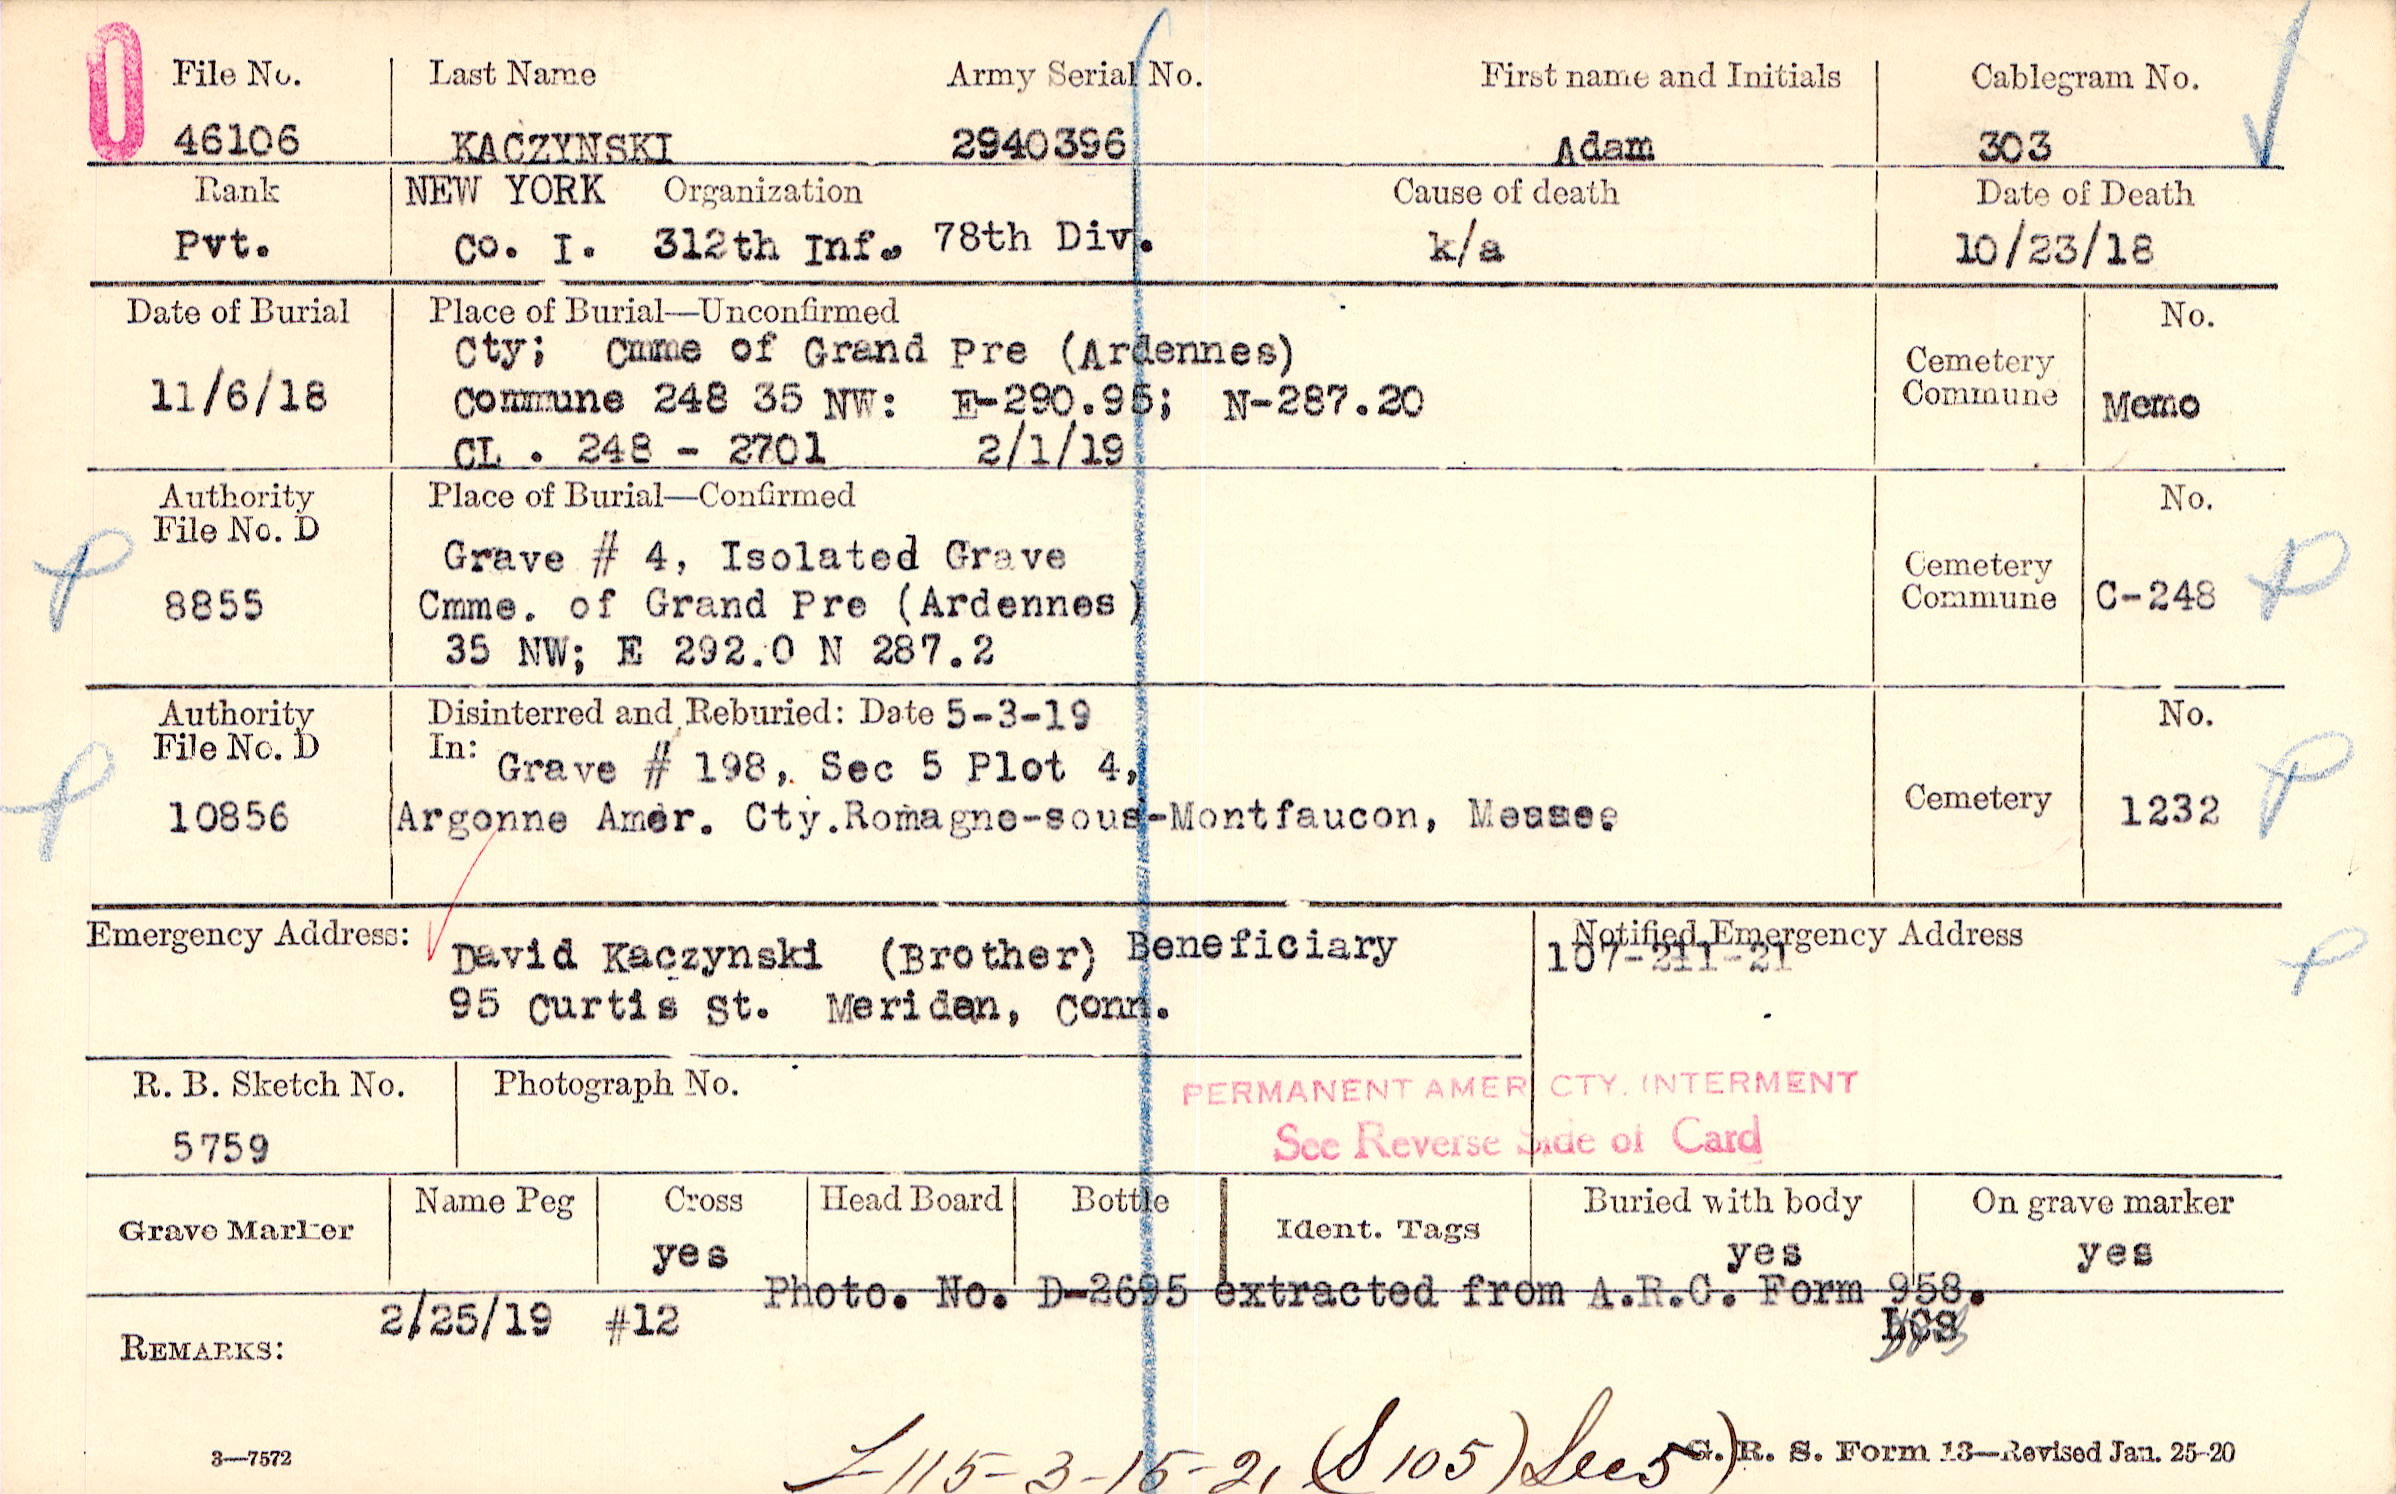 O
File No. Last Name Army Serial No. First name and Initials Cablegram No.
46106 KACZYNSKI 2940396 Adam 303
Rank NEW YORK Organization Cause of death Date of Death
Pvt. Co. I. 312th Inf. 78th Div. k/a 10/23/18
Date of Burial Place of Burial—Unconfirmed No.
Cty; Cmme of Grand Pre (Ardennes)
Cemetery
11/6/18 Commune 248 35 NW: E-290.95; N-287.20 Commune Memo
CL . 248 - 2701 2/1/19
Authority Place of Burial—Confirmed No.
File No. D
Grave # 4, Isolated Grave Cemetery
8855 Cmme. of Grand Pre (Ardennes) Commune C-248
35 NW; E 292.0 N 287.2
Authority Disinterred and Reburied: Date 5-3-19 No.
File No. D In: Grave # 198, Sec 5 Plot 4,
10856 Argonne Amer. Cty.Romagne-sous-Montfaucon, Cemetery 1232
Emergency Address: David Kaczynski (Brother) Beneficiary Notified Emergency Address
107-211-21
95 Curtis St. Meriden, Conn.
R. B. Sketch No. Photograph No. PERMANENT AMER CTY. INTERMENT
5759 See Reverse Side of Card
Grave Marker Name Peg Cross Head Board Bottle Ident. Tags Buried with body On grave marker
yes yes yes
Photo. No. D-2695 extracted from A.R.C. Form 958.
2/25/19 #12 LCS
REMARKS:
L-115-3-15-21 (S 105) Sec 5)
3—7572 G. R. S. Form 13—Revised Jan. 25-20